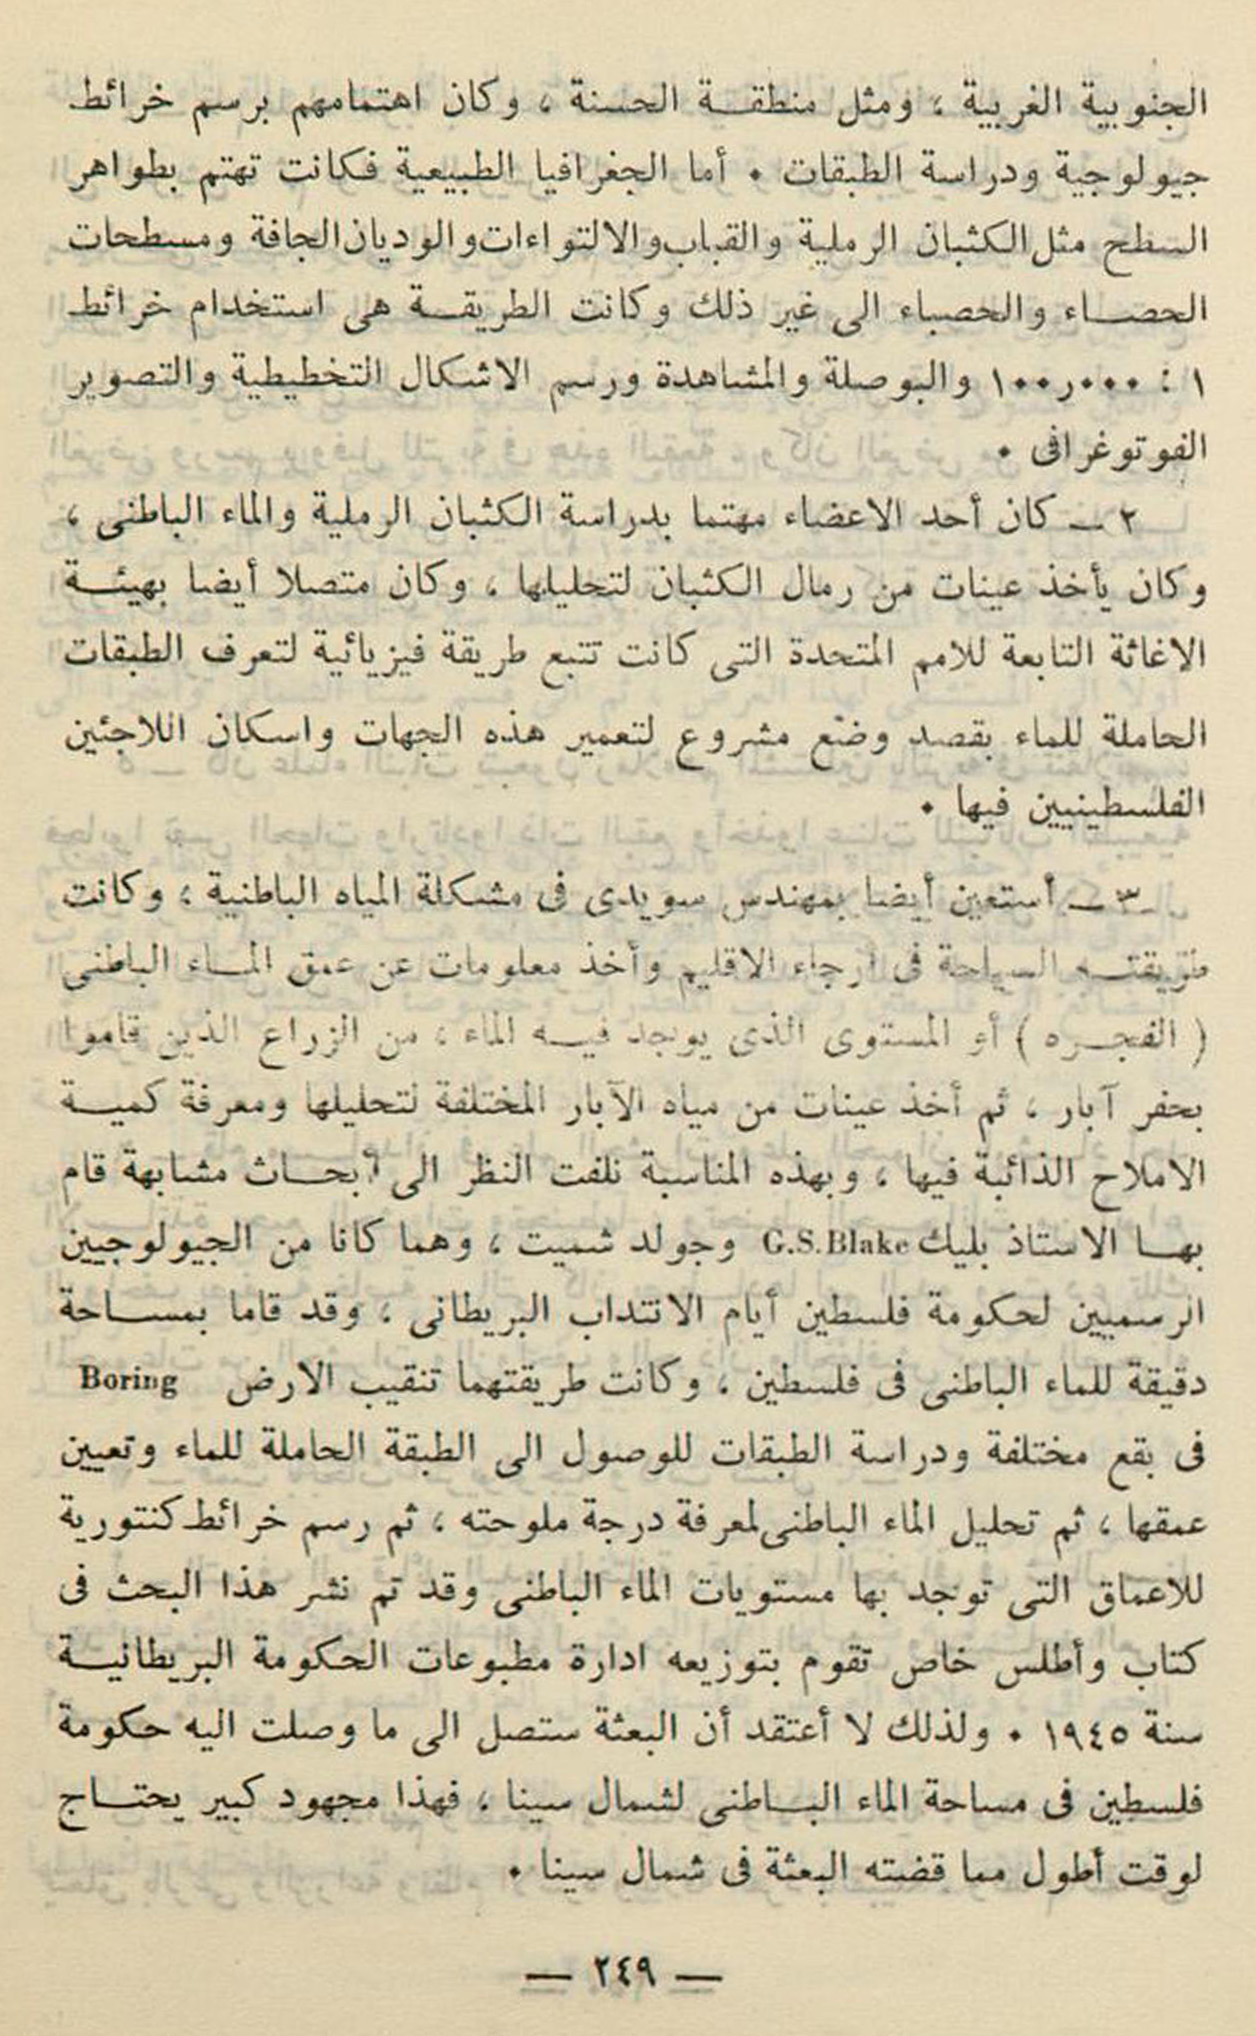 الجنوبية الغربية ؛ ومثل منطقة الحسنة ، وكان اهتمامهم برسم خرائط
جيولوجية ودراسة الطبقات . أما الجغرافيا الطبيعية فكانت تهتم بظواهر
السطح مثل الكثبان الرملية والقباب والالتواءات والوديان الجافة ومسطحات
الحصاء والحصباء الى غير ذلك وكانت الطريقة هى استخدام خرائط
١ : ١٠٠ر٠٠٠ والبوصلة والمشاهدة ورسم الاشكال التخطيطية والتصوير
الفوتوغرافى .
٢ ـ كان أحد الاعضاء مهتما بدراسة الكثبان الرملية والماء الباطنى ،
وكان يأخذ عينات من رمال الكثبان لتحليلها ، وكان متصلا أيضا بهيئة
الاغاثة التابعة للامم المتحدة التى كانت تتبع طريقة فيزيائية لتعرف الطبقات
الحاملة للماء بقصد وضع مشروع لتعمير هذه الجهات واسكان اللاجئين
الفلسطينيين فيها .
٣ ـ أستعين أيضا بمهندس سويدى فى مشكلة المياه الباطنية ؛ وكانت
طريقته السياحة فى أرجاء الاقليم وأخذ معلومات عن عمق الماء الباطنى
( الفجره ) أو المستوى الذى يوجد فيه الماء ، من الزراع الذين قاموا
بحفر آبار ، ثم أخذ عينات من مياه الآبار المختلفة لتحليلها ومعرفة كمية
الاملاح الذائبة فيها ، وبهذه المناسبة نلفت النظر الى أبحاث مشابهة قام
بها الاستاذ بليك G.S.Blake وجولد شميت ، وهما كانا من الجيولوجيين
الرسميين لحكومة فلسطين أيام الانتداب البريطانى ، وقد قاما بمساحة
دقيقة للماء الباطنى فى فلسطين ، وكانت طريقتهما تنقيب الارض Boring
فى بقع مختلفة ودراسة الطبقات للوصول الى الطبقة الحاملة للماء وتعيين
عمقها ، ثم تحليل الماء الباطنى لمعرفة درجة ملوحته ، ثم رسم خرائط كنتورية
للاعماق التى توجد بها مستويات الماء الباطنى وقد تم نشر هذا البحث فى
كتاب وأطلس خاص تقوم بتوزيعه ادارة مطبوعات الحكومة البريطانية
سنة ١٩٤٥ . ولذلك لا أعتقد أن البعثة ستصل الى ما وصلت اليه حكومة
فلسطين فى مساحة الماء الباطنى لشمال سينا ، فهذا مجهود كبير يحتاج
لوقت أطول مما قضته البعثة فى شمال سينا .
— ٢٤٩ —